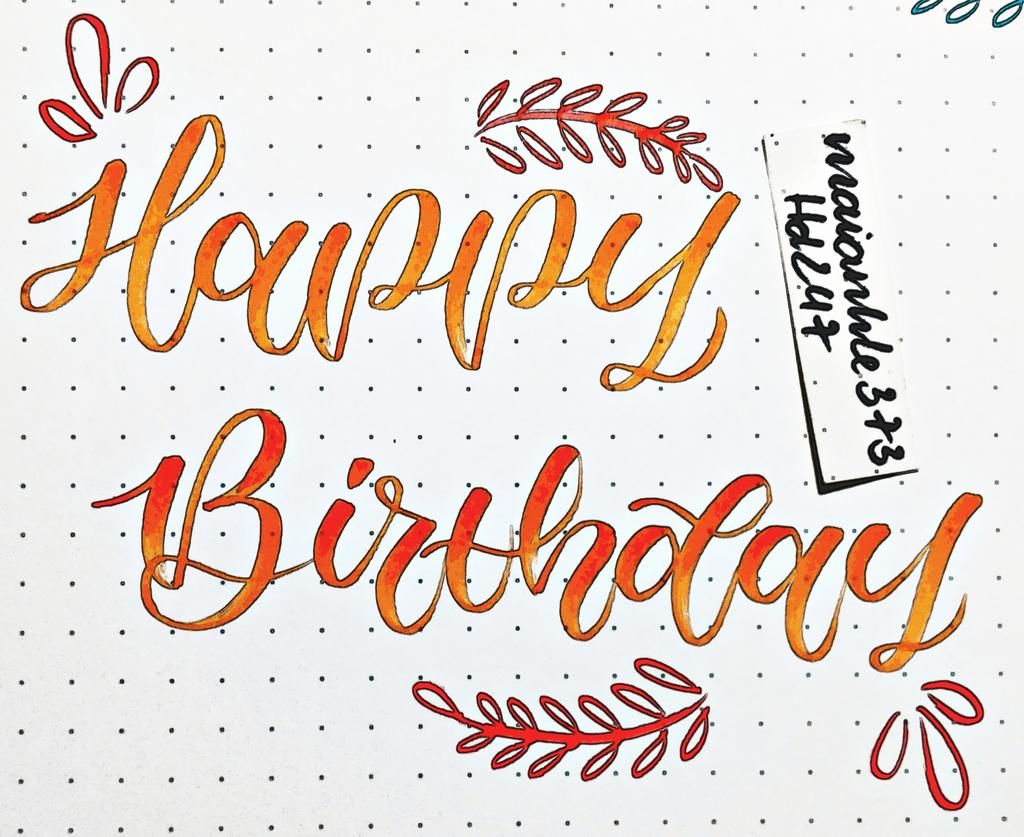 Happy
Birthday
maianhle373
Hd247